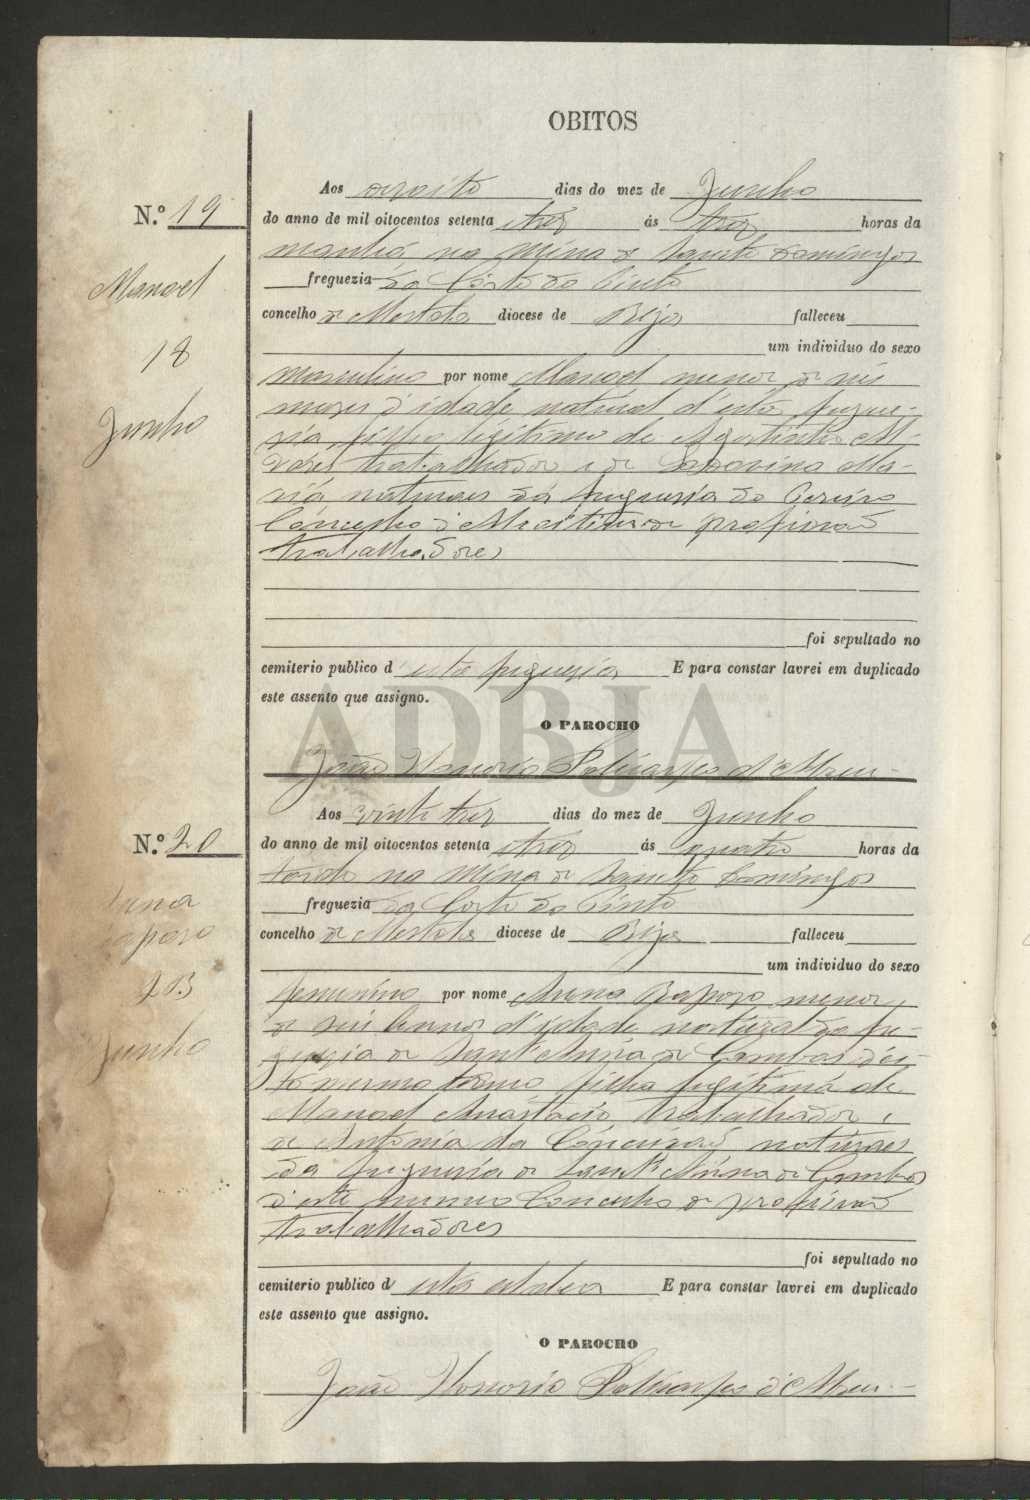 OBITOS
N.º 19
Manoel
18
Junho
Aos desoito dias do mez de Junho
do anno de mil oitocentos setenta e trez ás trez horas da
manhã na Mina de Sancto Domingos
freguezia da Corte do Pinto
concelho de Mertola diocese de Beja falleceu
um individuo do sexo
masculino por nome Manoel menor de seis
mezes d'idade natural d'esta fregue-
zia filho legitimo de Agostinho
trabalhador e de Ma-
ria naturaes da freguezia do Pereiro
Concelho d' profissão
trabalhadores
foi sepultado no
cemiterio publico d'esta freguezia E para constar lavrei em duplicado
este assento que assigno.
O PAROCHO
ADBJA
João Honorio d'Abreu
N.º 20
Anna
Raposo
23
Junho
Aos vinte trez dias do mez de Junho
do anno de mil oitocentos setenta e trez ás quatro horas da
tarde na Mina de Sancto Domingos
freguezia da Corte do Pinto
concelho de Mertola diocese de Beja falleceu
um individuo do sexo
femenino por nome Anna Raposo menor
de seis annos d'idade natural da fre-
guezia de Sant'Anna de Cambas d'es-
te mesmo filha legitima de
Manoel Anastacio trabalhador e
de Antonia da Conceição naturaes
da freguezia de Sant'Anna de Cambas
d'este mesmo Concelho de profissão
trabalhadores
foi sepultado no
cemiterio publico d'esta aldea E para constar lavrei em duplicado
este assento que assigno.
O PAROCHO
João Honorio d'Abreu